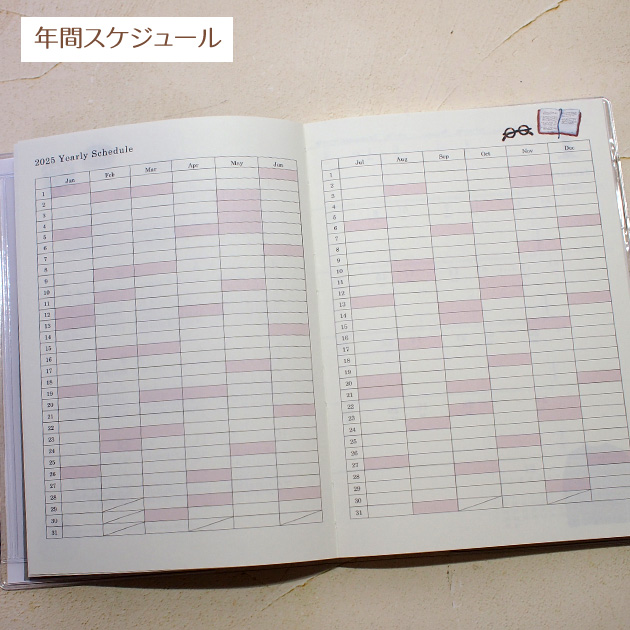 年間スケジュール
2025 Yearly Schedule
Jan Feb Mar Apr May Jun
1
2
3
4
5
6
7
8
9
10
11
12
13
14
15
16
17
18
19
20
21
22
23
24
25
26
27
28
29
30
31
Jul Aug Sep Oct Nov Dec
1
2
3
4
5
6
7
8
9
10
11
12
13
14
15
16
17
18
19
20
21
22
23
24
25
26
27
28
29
30
31